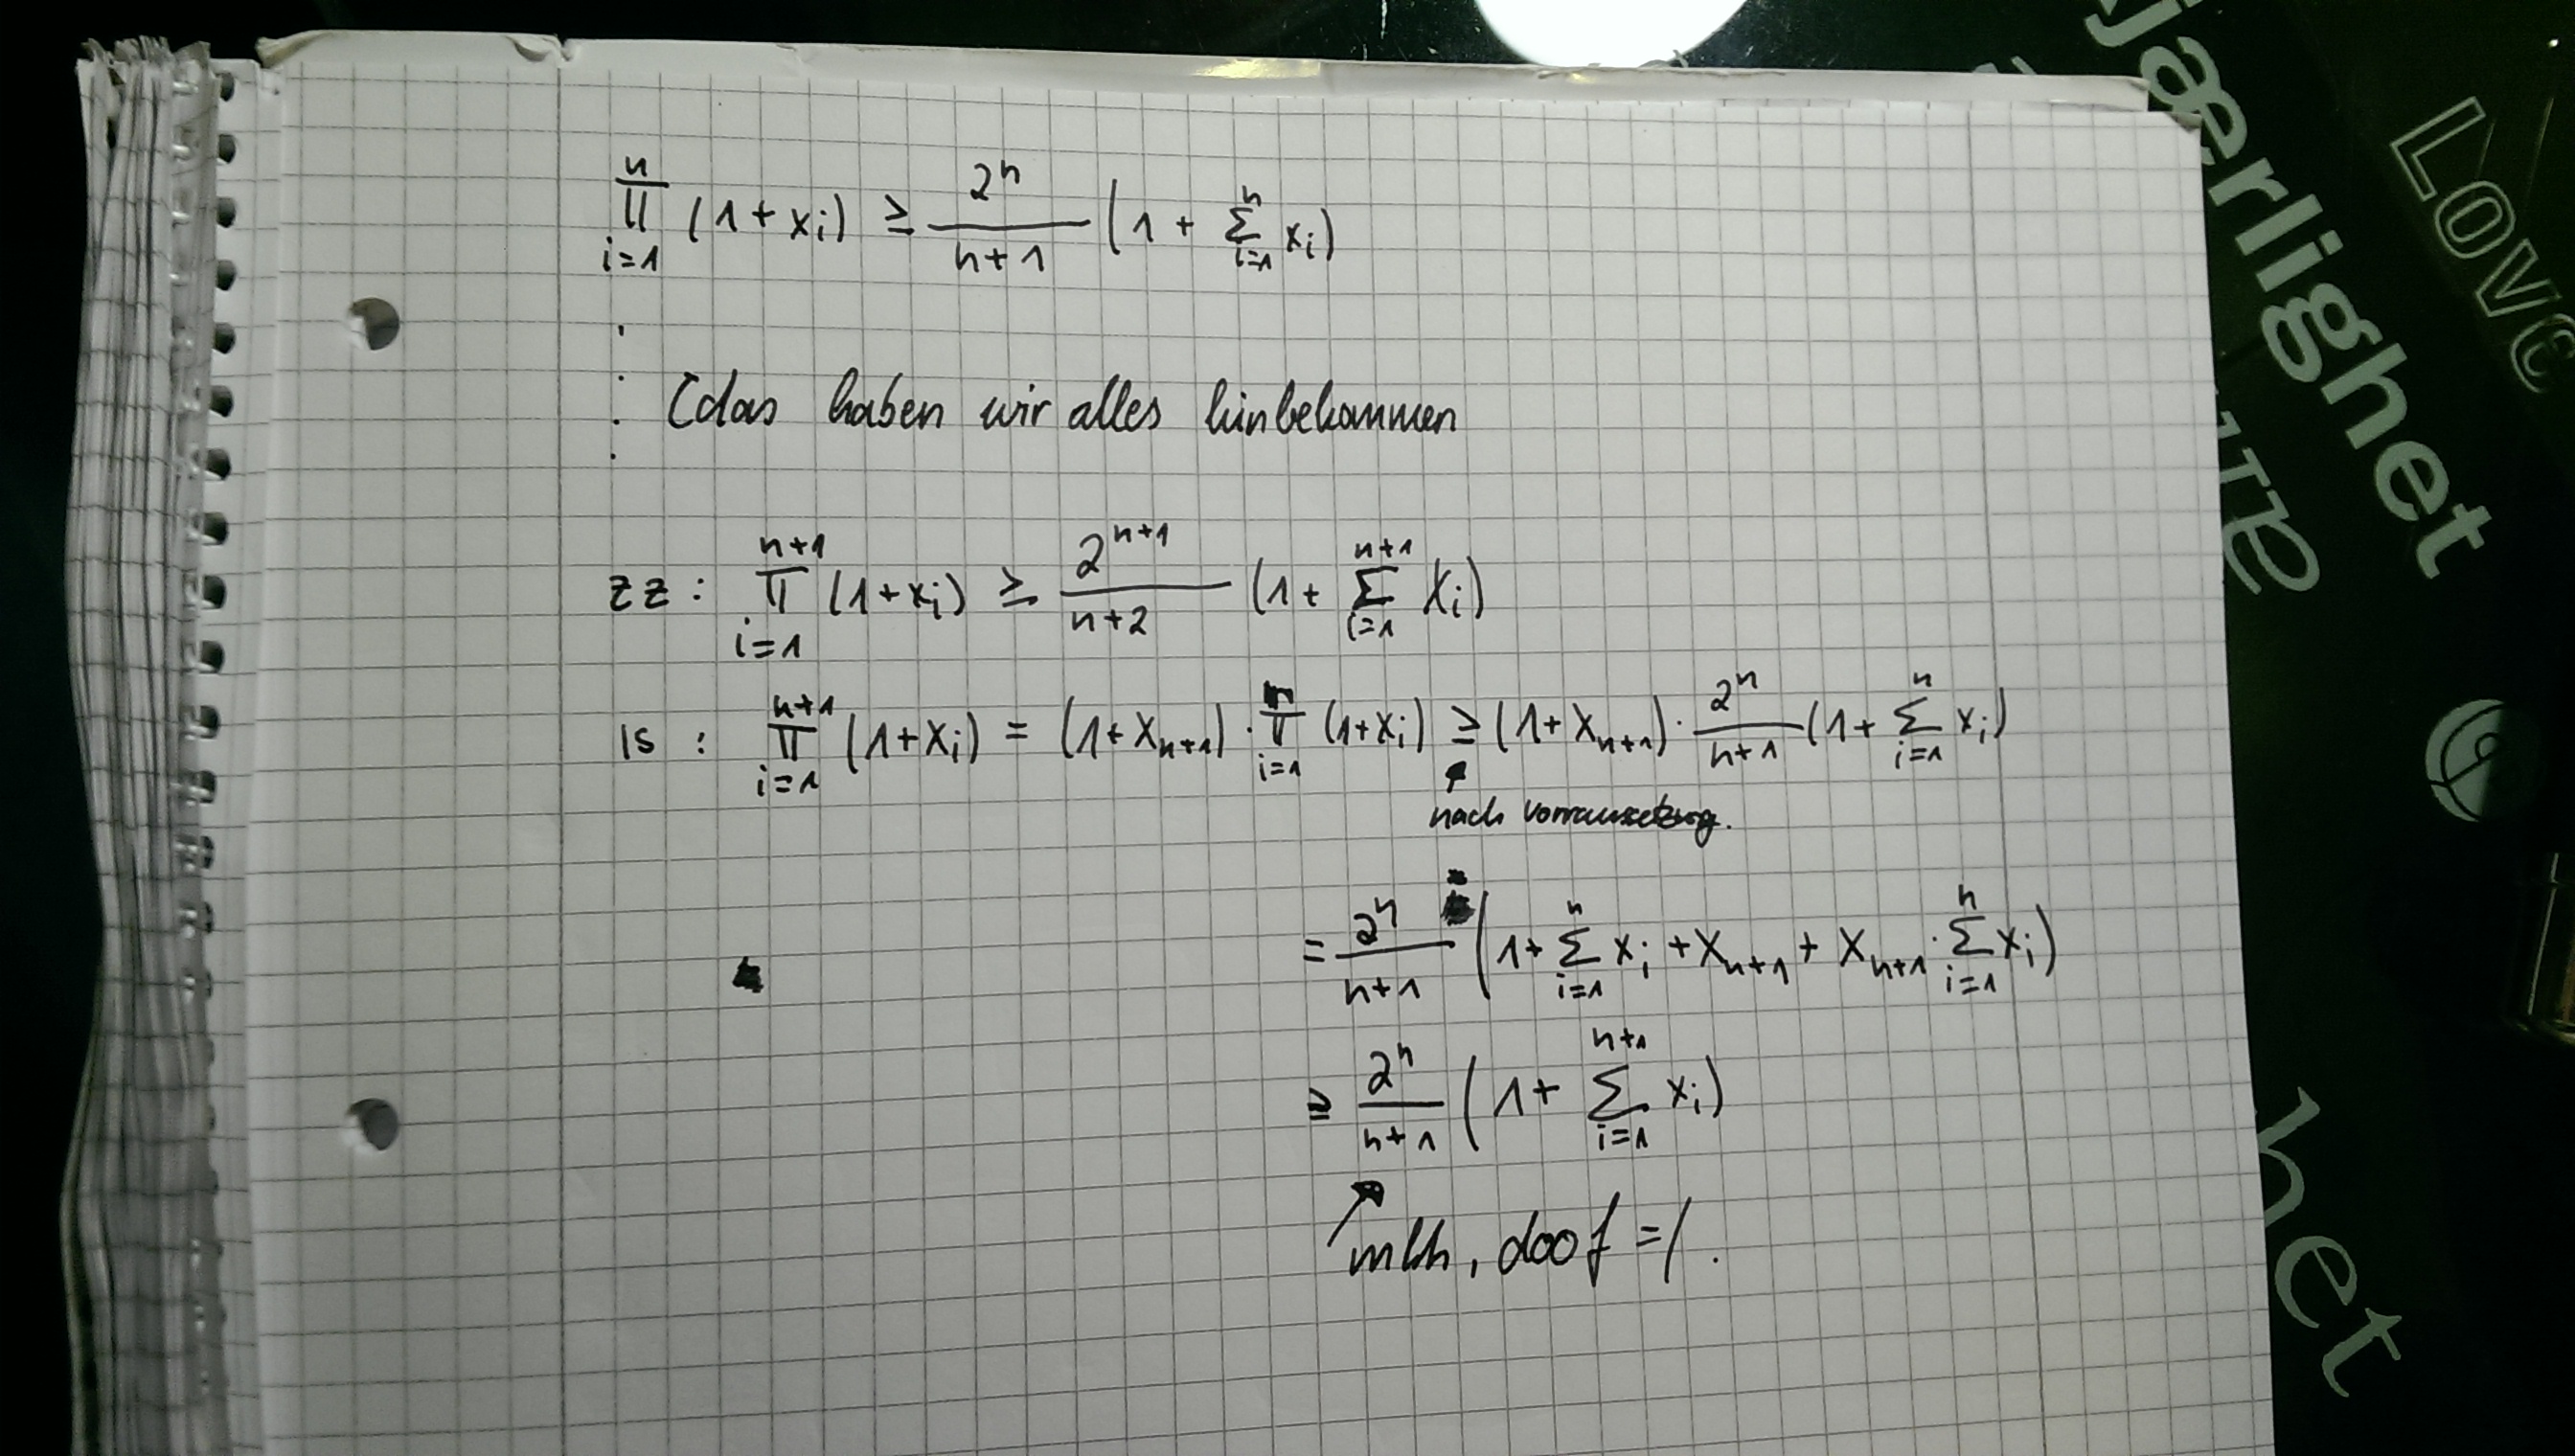 n∏i=1 (1+xi) ≥ 2^n/(n+1) (1 + n∑i=1 xi)
(das haben wir alles hinbekommen
zz: n+1∏i=1 (1+xi) ≥ 2^(n+1)/(n+2) (1+ n+1∑i=1 xi)
IS: n+1∏i=1 (1+xi) = (1+x_(n+1)) · n∏i=1 (1+xi) ≥ (1+x_(n+1)) · 2^n/(n+1) (1+ n∑i=1 xi)
nach Vorraussetzung.
= 2^n/(n+1) (1+ n∑i=1 xi + x_(n+1) + x_(n+1) · n∑i=1 xi)
≥ 2^n/(n+1) (1+ n+1∑i=1 xi)
, doof =/.
jærlighet
Love
het